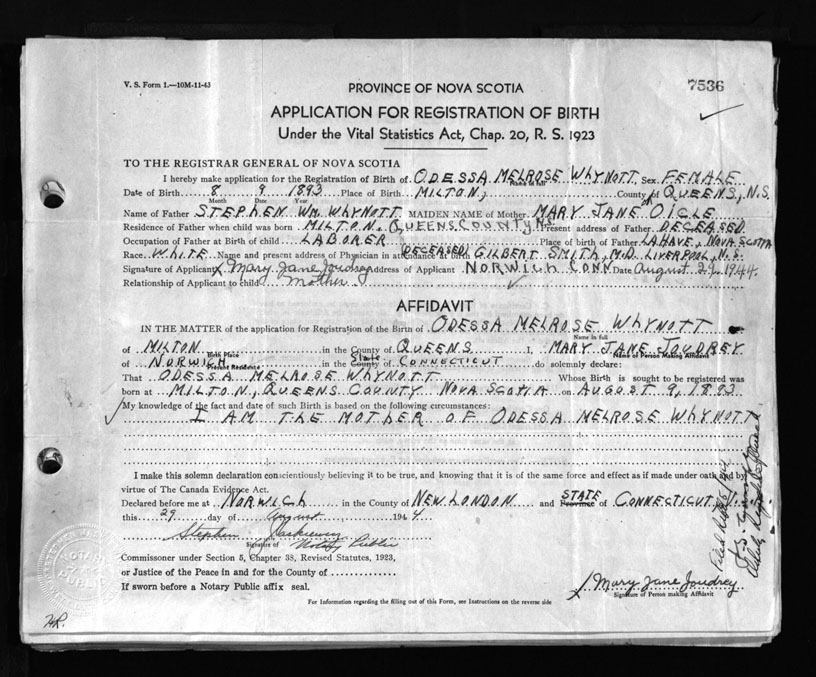 V. S. Form 1.—10M-11-43
7536
PROVINCE OF NOVA SCOTIA
APPLICATION FOR REGISTRATION OF BIRTH
Under the Vital Statistics Act, Chap. 20, R. S. 1923
TO THE REGISTRAR GENERAL OF NOVA SCOTIA
I hereby make application for the Registration of Birth of ODESSA MELROSE WHYNOTT Sex FEMALE
Name in full
Date of Birth 8 9 1893 Place of Birth MILTON, County of QUEENS, N.S.
Month Date Year
Name of Father STEPHEN WM. WHYNOTT MAIDEN NAME of Mother MARY JANE OICLE
Residence of Father when child was born MILTON, QUEENS COUNTY, N.S. Present address of Father DECEASED
Occupation of Father at Birth of child LABORER Place of Birth of Father LAHAVE, NOVA SCOTIA
Race WHITE Name and present address of Physician in attendance at birth (DECEASED) GILBERT SMITH, M.D. LIVERPOOL, N.S.
Signature of Applicant Mary Jane Joudrey Address of Applicant NORWICH CONN Date August 29 1944
Relationship of Applicant to child mother
AFFIDAVIT
IN THE MATTER of the application for Registration of the Birth of ODESSA MELROSE WHYNOTT
Name in full
of MILTON in the County of QUEENS I, MARY JANE JOUDREY
Birth Place Name of Person Making Affidavit
of NORWICH in the County State of CONNECTICUT do solemnly declare:
Present Residence
That ODESSA MELROSE WHYNOTT Whose Birth is sought to be registered was
born at MILTON, QUEENS COUNTY NOVA SCOTIA on AUGUST 9, 1893
My knowledge of the fact and date of such Birth is based on the following circumstances:
I AM THE MOTHER OF ODESSA MELROSE WHYNOTT
I make this solemn declaration conscientiously believing it to be true, and knowing that it is of the same force and effect as if made under oath by
virtue of The Canada Evidence Act.
Declared before me at NORWICH in the County of NEW LONDON and Province STATE of CONNECTICUT, U.S.
this 29 day of August 1944
Stephen
Signature of Notary Public
Commissoner under Section 5, Chapter 38, Revised Statutes, 1923,
or Justice of the Peace in and for the County of
If sworn before a Notary Public affix seal.
Mary Jane Joudrey
Signature of Person making Affidavit
For Information regarding the filling out of this Form, see Instructions on the reverse side
NOTARY PUBLIC